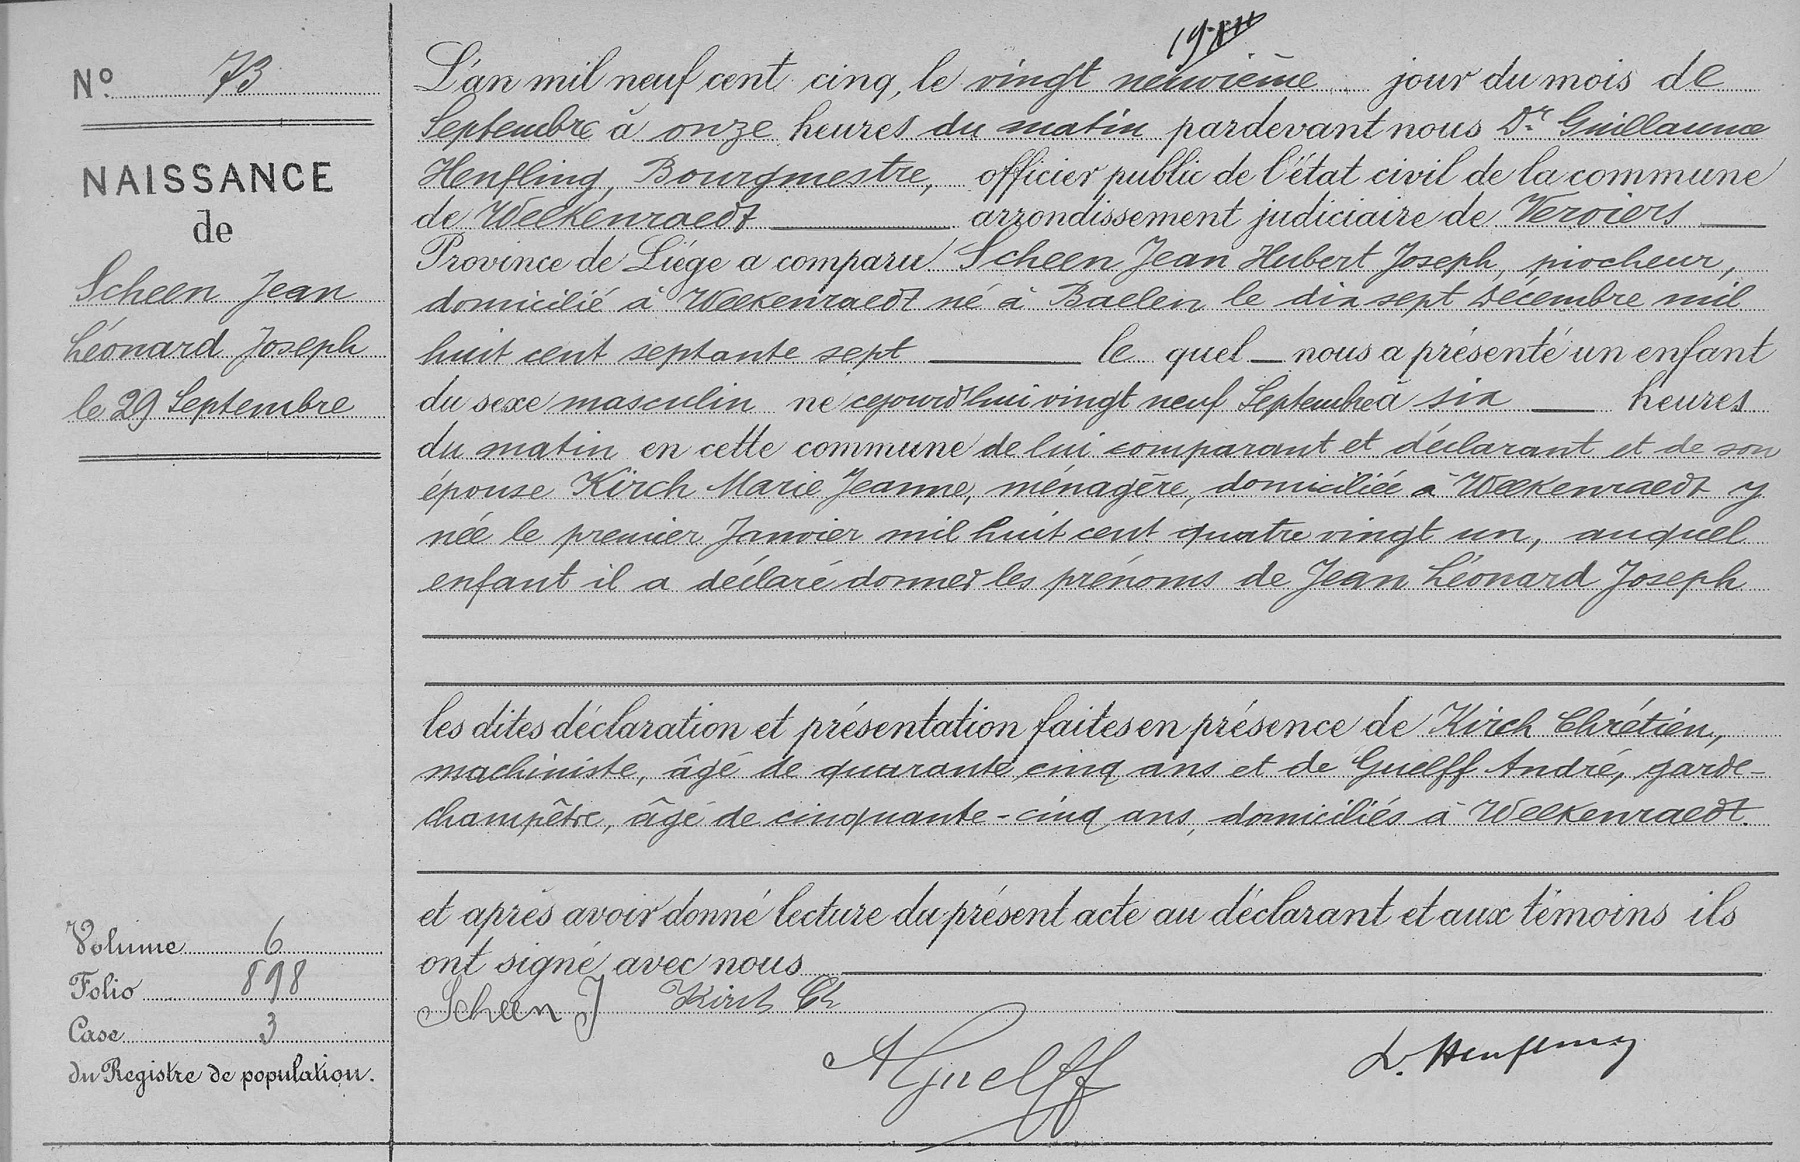 Nº 73
NAISSANCE
de
Scheen Jean
Léonard Joseph
le 29 Septembre
Volume 6
Folio 898
Case 3
du Registre de population.
L'an mil neuf cent cinq, le vingt neuvième jour du mois de
Septembre à onze heures du matin pardevant nous Dr Guillaume
Henfling, Bourgmestre, officier public de l'état civil de la commune
de Welkenraedt arrondissement judiciaire de Verviers
Province de Liége a comparu Scheen Jean Hubert Joseph, piocheur,
domicilié à Welkenraedt né à Baelen le dix sept Décembre mil
huit cent septante sept le quel nous a présenté un enfant
du sexe masculin né cejourd'hui vingt neuf Septembre à six heures
du matin en cette commune de lui comparant et déclarant et de son
épouse Kirch Marie Jeanne, ménagère, domiciliée à Welkenraedt y
née le premier Janvier mil huit cent quatre vingt un, auquel
enfant il a déclaré donner les prénoms de Jean Léonard Joseph
les dites déclaration et présentation faites en présence de Kirch Chrétien,
machiniste, âgé de quarante cinq ans et de Guelff André, garde-
champêtre, âgé de cinquante-cinq ans, domiciliés à Welkenraedt.
et après avoir donné lecture du présent acte au déclarant et aux témoins ils
ont signé avec nous
Scheen J Kirch Ch
AGuelff
Dr. Henfling